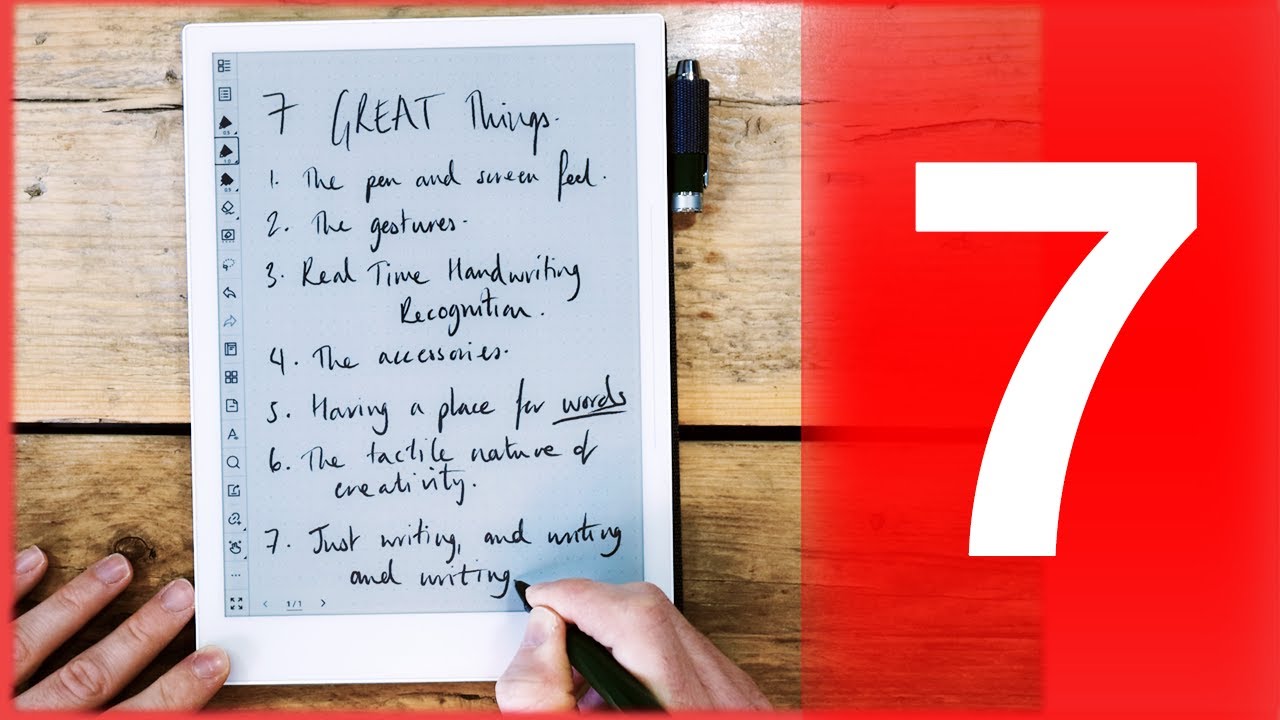 7 GREAT Things.
1. The pen and screen feel.
2. The gestures.
3. Real Time Handwriting
Recognition.
4. The accessories.
5. Having a place for words
6. The tactile nature of
creativity.
7. Just writing, and writing
and writing
1/1
7